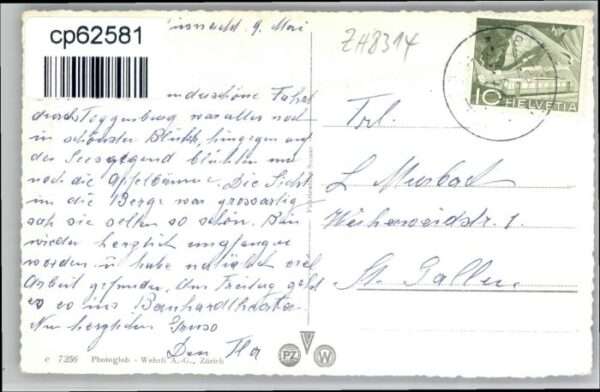 cp62581
9. Mai
ZH8314
10 HELVETIA
wunderschöne Fahrt
durchs Toggenburg war alles noch
in schönster Blüte, hingegen auf
der Seegegend blühten nur
noch die Apfelbäume. Die Sicht
in die Berge war grossartig
sah sie selten so schön. Bin
wieder herzlich empfangen
worden u. habe natürlich viel
Arbeit gefunden. Am Freitag geht
es ins Bernhardtheater.
Nun herzlichen Gruss
Frl.
L. Murbach
Weiherweidstr. 1
St. Gallen
c 7256 Photoglob - Wehrli A.-G., Zürich
PZ W